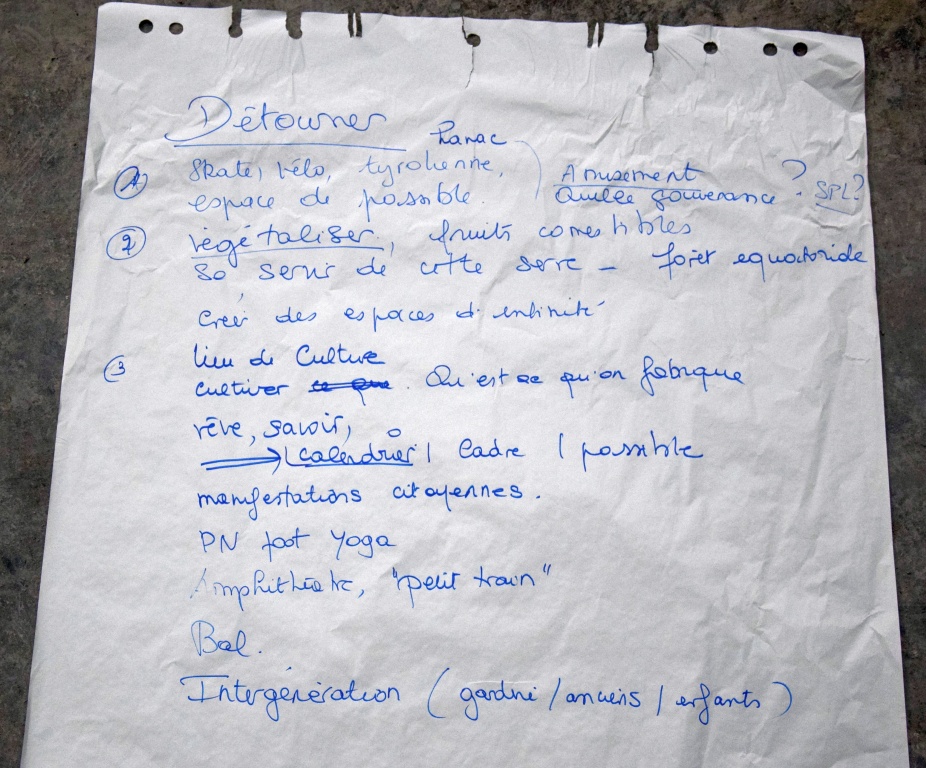 Détourner
hamac
① Skate, vélo, tyrolienne, Amusement ?
espace de possible. Quelle gouvernance SPL?
② végétaliser, fruits comestibles
se servir de cette serre - forêt equatoriale
Créer des espaces d'intimité
③ lieu de Culture
cultiver ce que. Qu'est ce qu'on fabrique
rêve, savoir,
calendrier | Cadre | possible
manifestations citoyennes.
PN foot Yoga
Amphithéatre, "petit train"
Bal.
Intergénération ( / anciens / enfants )